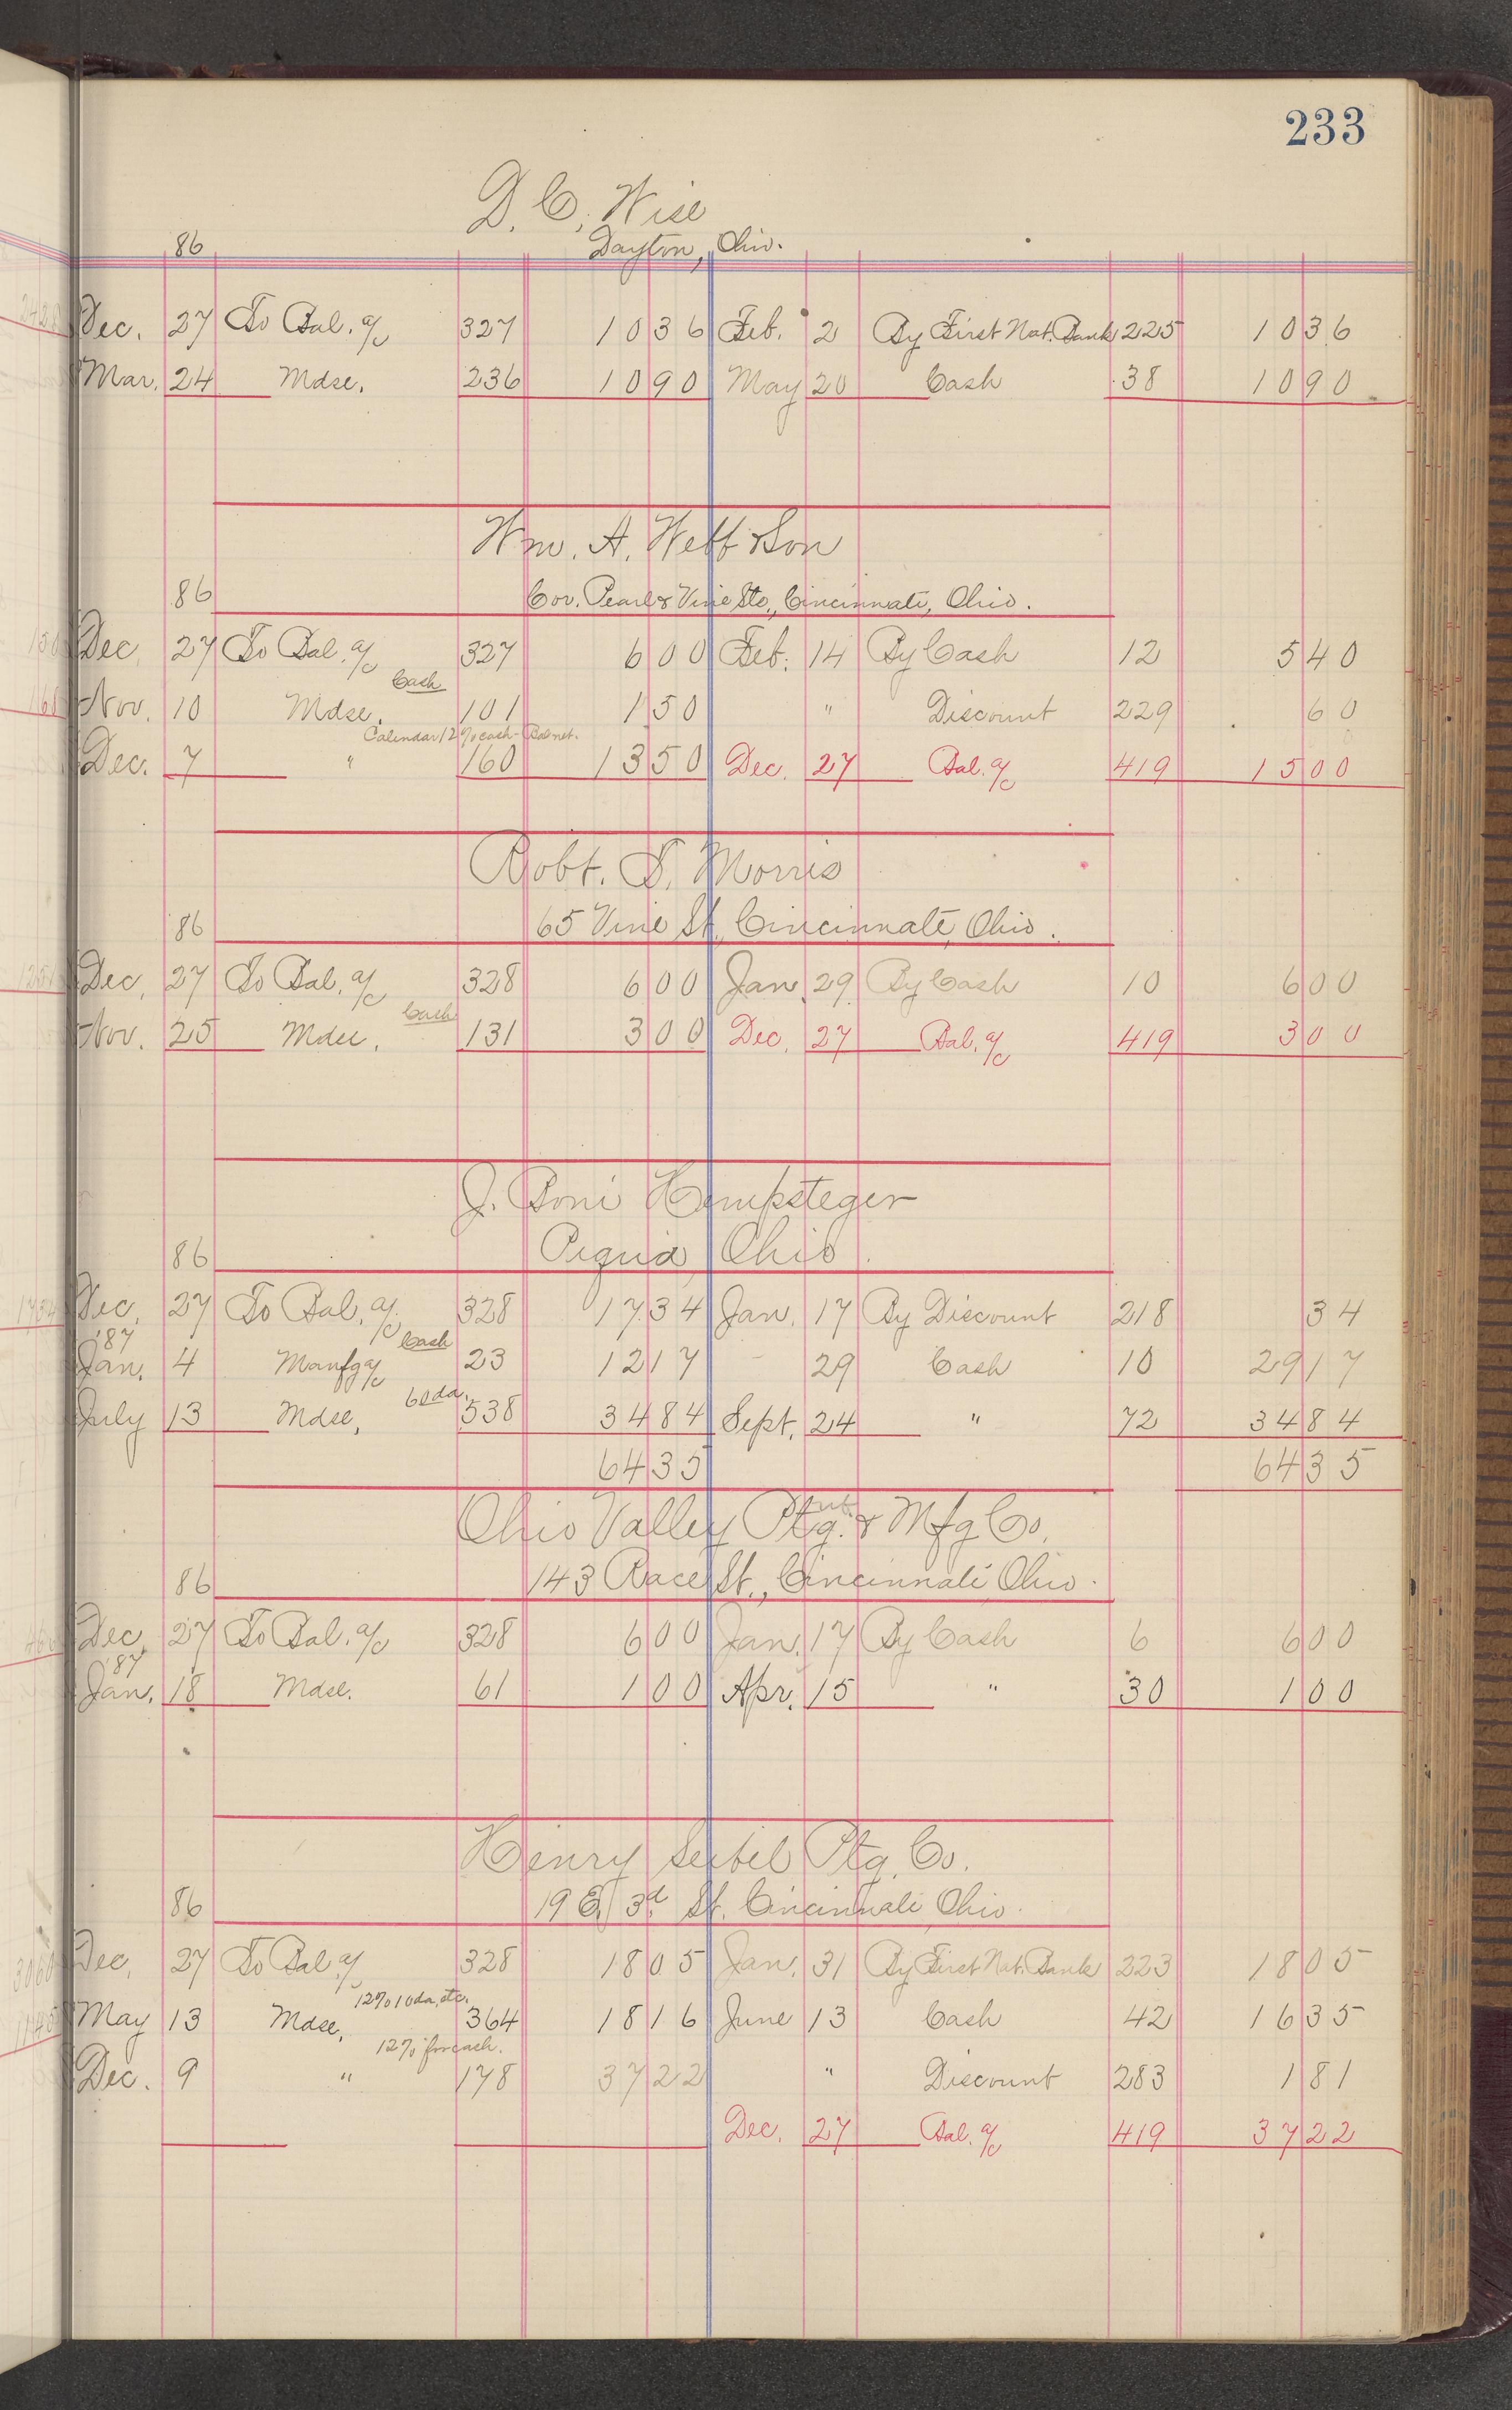 233
D. C. Wise
86 Dayton, Ohio.
Dec. 27 To Bal. a/c 327 1036 Feb. 2 By First Nat. Bank 225 1036
Mar. 24 Mdse. 236 1090 May 20 Cash 38 1090
Wm. A. Webb & Son
86 Cor. Pearl & Vine Sts., Cincinnati, Ohio.
Dec. 27 To Bal. a/c 327 600 Feb. 14 By Cash 12 540
Cash
Nov. 10 Mdse. 101 150 " Discount 229 60
Calendar 12% cash - Bal net.
Dec. 7 " 160 1350 Dec. 27 Bal. a/c 419 1500
Robt. T. Morris
86 65 Vine St., Cincinnati, Ohio.
Dec. 27 To Bal. a/c 328 600 Jan. 29 By Cash 10 600
Cash
Nov. 25 Mdse. 131 300 Dec. 27 Bal. a/c 419 300
J. Boni Hempsteger
86 Piqua, Ohio.
Dec. 27 To Bal. a/c 328 1734 Jan. 17 By Discount 218 34
'87 Cash
Jan. 4 Manfg a/c 23 1217 29 Cash 10 2917
60 da.
July 13 Mdse. 538 3484 Sept. 24 " 72 3484
6435 6435
Ohio Valley Ptg. & Mfg Co.
86 143 Race St., Cincinnati, Ohio.
Dec. 27 To Bal. a/c 328 600 Jan. 17 By Cash 6 600
'87
Jan. 18 Mdse. 61 100 Apr. 15 " 30 100
Henry Seibel Ptg. Co.
86 19 E. 3d. St. Cincinnati, Ohio.
Dec. 27 To Bal. a/c 328 1805 Jan. 31 By First Nat. Bank 223 1805
12% 10 da, etc.
May 13 Mdse. 364 1816 June 13 Cash 42 1635
12% for cash.
Dec. 9 " 178 3722 " Discount 283 181
Dec. 27 Bal. a/c 419 3722